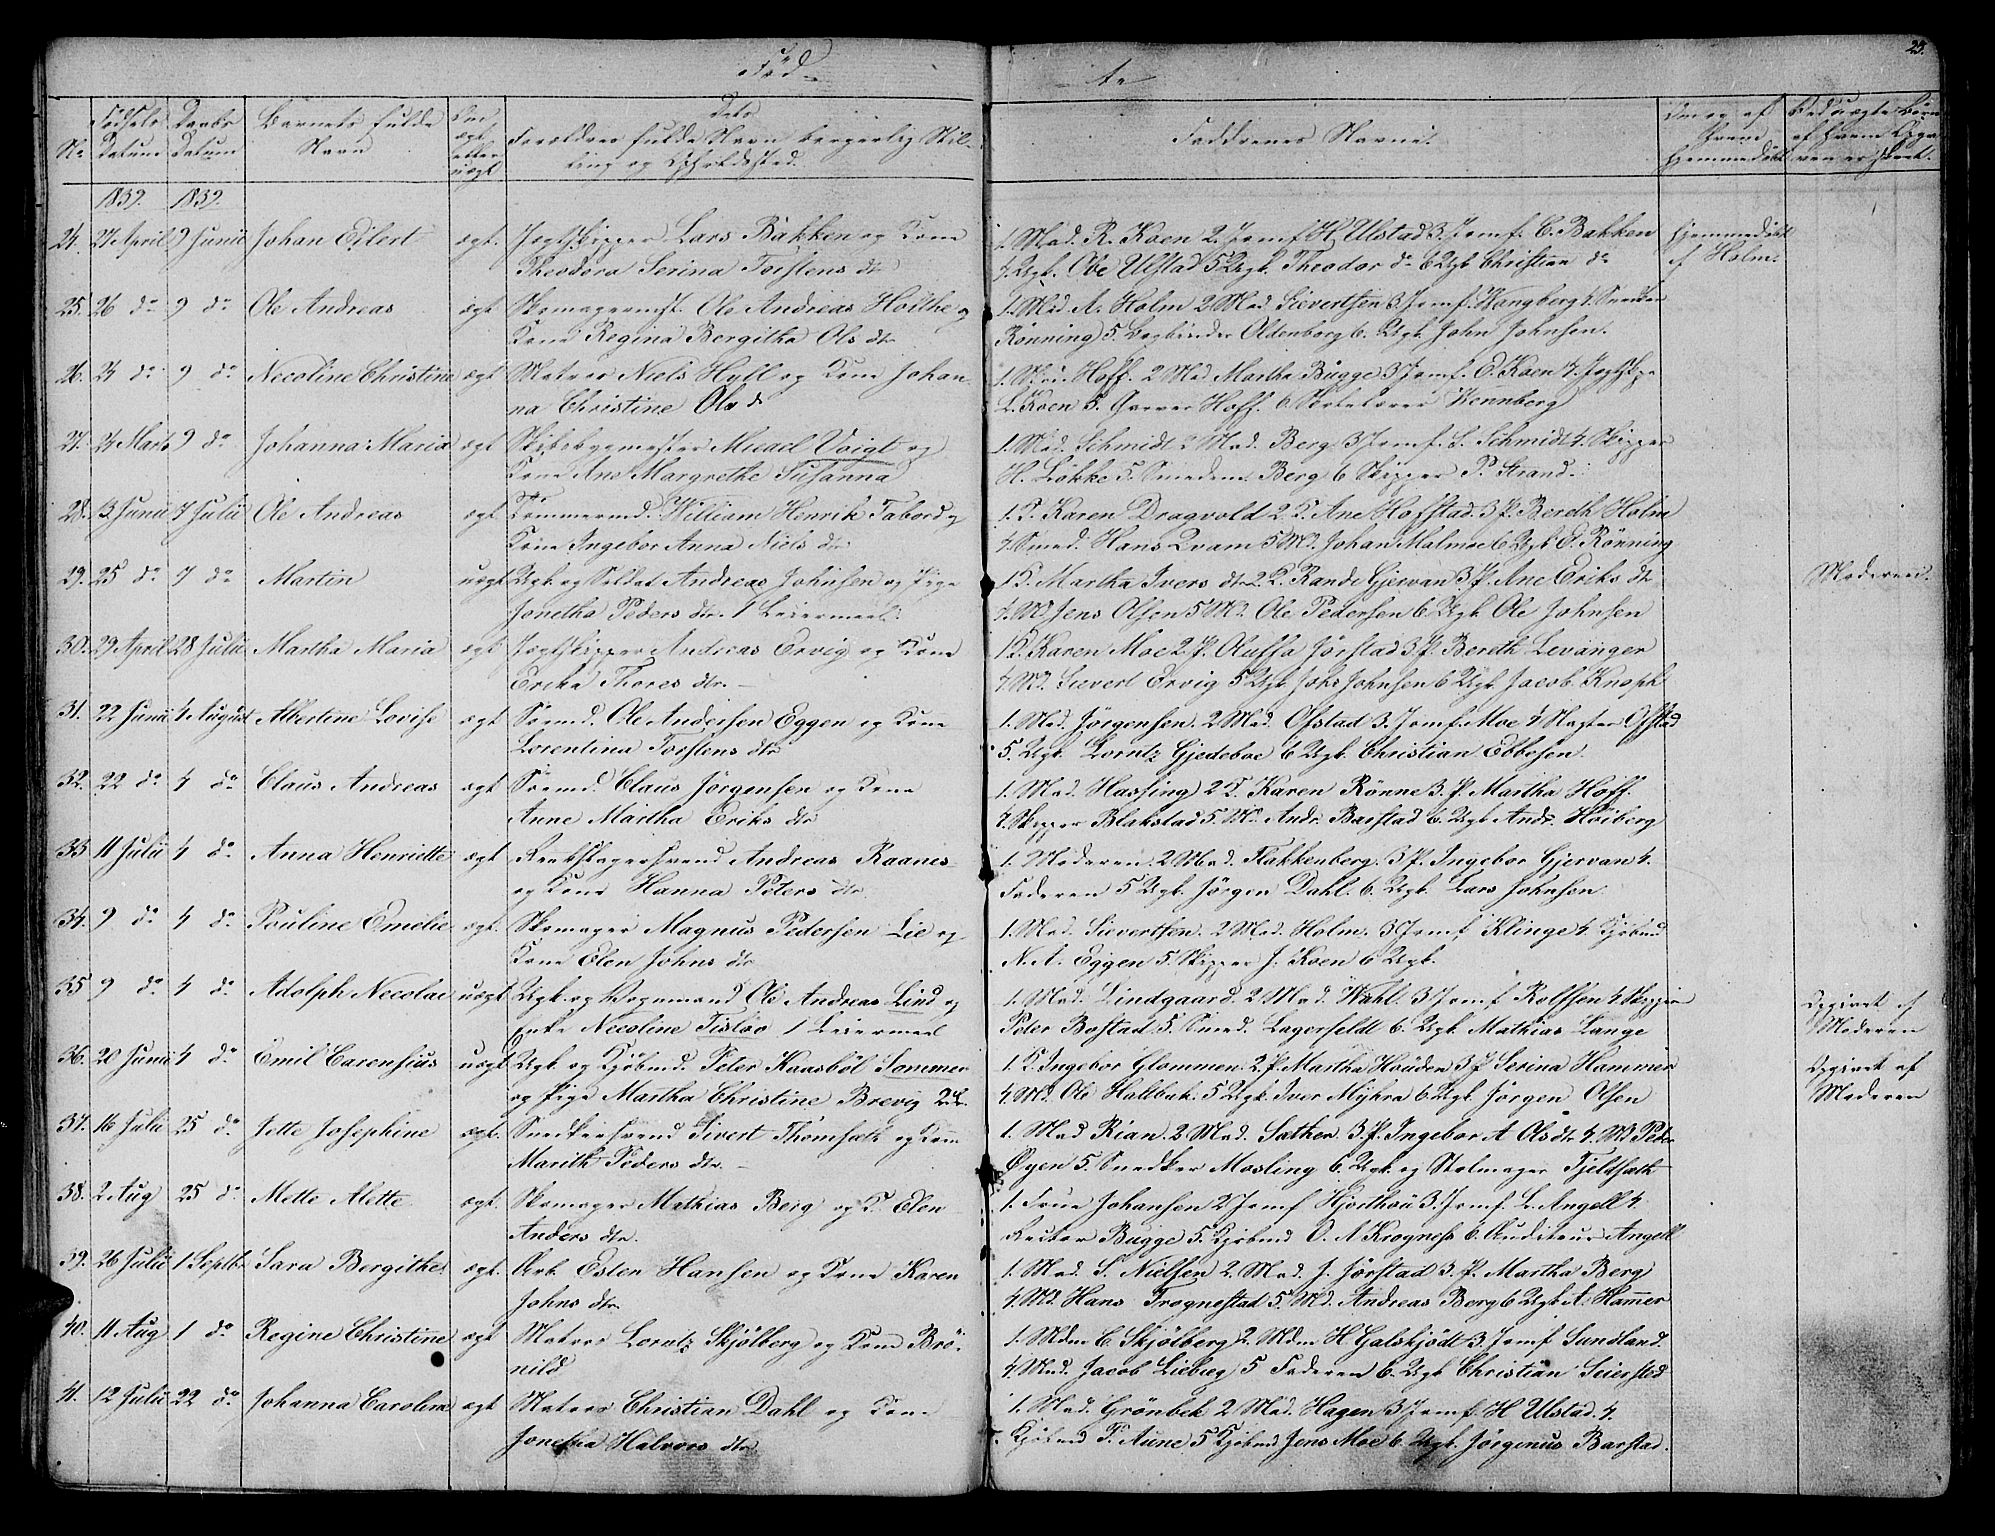 Fød-
te
25.
No
Fødsels Datum
Daabs Datum
Barnets fulde Navn
Om ægte eller uægt.
Dets Forældres fulde Navn borgerlig Stilling og Opholdssted.
Faddrenes Navne.
Om og af Hvem hjemmedøbt
Ved uægte Børn af Hvem Opgaven er skeet.
1839. 1839.
24. 27 April 9 Junii Johan Eilert ægt. Jægtskipper Lars Bakken og Kone
Theodora Serina Torstens dtr
1. Mad. R. Koen 2. Jomf. H. Ulstad 3. Jomf. C. Bakken
4. Ugk. Ove Ulstad 5 Ugk. Theodor do 6 Ugk Christian do
Hjemmedøbt
af Holm.
25. 26 do 9 do Ole Andreas ægt Skomagermst. Ole Andreas Höithe og
Kone Regina Bergitha Ols dtr
1. Mad A. Holm 2 Mad Sievertsen 3 Jomf. Kongberg 4. Snedker
Rönning 5. Bogbinder Oldenborg 6. Ugk. John Johnsen.
26. 24 do 9 do Necoline Christine ægt Matros Niels Hyll og Kone Johan-
na Christine Ols d
1. Mad. Hoff. 2 Mad Martha Bugge 3 Jomf. O. Koen 4. Jægtskpr
L. Koen 5. Garver Hoff. 6. Skolelærer Wennberg
27. 24 Marts 9 do Johanna Maria ægt Skibsbygmester Micael Voigt og
Kone Ane Margrethe Susanna
1. Mad. Schmidt 2 Mad. Berg 3 Jomf. S. Schmidt 4. Skipper
H. Lökke 5. Smedem. Berg 6 Skipper P. Strand.
28. 13 Junii 7 Julii Ole Andreas ægt Tömmermd. William Henrik Tabord og
Kone Ingebor Anna Niels dtr
1. K. Karen Dragvold 2 K. Ane Hofstad. 3 P. Bereth Holm
4. Smed. Hans Qvam 5 Md. Johan Malmoe 6 Ugk E. Rönning
29. 25 do 7 do Martin uægt Ugk og Soldat Andreas Johnsen og Pige
Jonetha Peders dtr. 1 Leiermaal.
1 K. Martha Ivers dtr 2. K. Rande Gjervan 3 P. Ane Eriks dtr
4. Md Jens Olsen 5 Md. Ole Pedersen 6 Ugk Ole Johnsen
Moderen.
30. 29 April 28 Julii Martha Maria ægt Jægtskipper Andreas Ervig og Kone
Erika Thores dtr.
1 K. Karen Moe 2 P. Oluffa Jörstad 3 P. Bereth Levanger
4 Md. Sievert Ervig 5 Ugk Johs Johnsen 6 Ugk Jacob Knoph
31. 22 Junii 4 August Albertine Lovise ægt Sömd. Ole Andersen Eggen og Kone
Lorentina Torstens dtr
1. Mad. Jörgensen. 2 Mad. Ofstad 3. Jomf. Moe 4 Vægter Ofstad
5. Ugk. Lorntz Gjedeboe 6 Ugk. Christian Ebbesen.
32. 22 do 4 do Claus Andreas ægt Sömd. Claus Jörgensen og Kone
Anne Martha Eriks dtr
1. Mad. Hassing 2 K. Karen Rönne 3. P. Martha Hoff.
4. Skipper Blakstad 5. Md. Andr. Barstad 6. Ugk Andr. Höiberg
33 11 Julii 4 do Anna Henriette ægt Rebslagersvend Andreas Raanes
og Kone Hanna Peters dtr
1. Moderen. 2 Mad. Flakkenberg. 3 P. Ingebor Gjervan 4.
Faderen 5 Ugk. Jörgen Dahl. 6. Ugk. Lars Johnsen.
34. 9 do 4 do Pouline Emelie ægt. Skomager Magnus Pedersen Lie og
Kone Elen Johns dtr
1. Mad. Sievertsen. 2 Mad. Holm. 3 Jomf Klinge 4. Kjöbmd
N. A. Eggen 5. Skipper J. Koen 6 Ugk.
35 9 do 4 do Adolph Necolai uægt Ugk. og Vognmand Ole Andreas Lind og
Enke Necoline Tisløv 1 Leiermaal
1. Mad. Lindgaard. 2 Mad. Wahl. 3 Jomf Rolfsen 4 Skipper
Peter Bostad 5. Smed. Lagerfeldt 6. Ugk. Mathias Lange
Opgivet af
Moderen
36. 20 Junii 4 do Emil Carensius uægt Ugk og Kjöbmd. Peter Kaasböl Sommer
og Pige Martha Christine Brevig 2 L.
1. K. Ingebor Glommen. 2 P. Martha Houden 3 J Serina Hammer
4. Md. Ole Halbak. 5 Ugk. Iver Myhra 6 Ugk Jörgen Olsen
Opgivet af
Moderen
37. 16 Julii 25 do Jette Josephine ægt. Snedkersvend Sivert Thomsæth og Kone
Marith Peders dtr.
1. Mad Rian. 2 Mad. Sæther. 3. P. Ingebor A Olsdtr 4. Md Peder
Øyen 5. Snedker Mosling 6. Ugk. og Stolmager Fjeldsæth
38. 2 Aug 25 do Mette Alette ægt. Skomager Mathias Berg og K. Elen
Anders dtr.
1. Frue Johansen 2 Jomf Hjorthöi 3. Jomf L. Angell 4.
Rector Bugge 5. Kjöbmd O. A Krogness 6. Auditeur Angell
39. 26 Julii 1 Septbr Sara Bergithe ægt. Arb. Esten Hansen og Kone Karen
Johns dtr
1. Mad. S. Nielsen 2. Mad. J. Jörstad 3. P. Martha Berg
4. Md. Hans Trognestad 5. Md. Andreas Berg 6 Ugk A. Hammer
40. 11 Aug 1 do Regine Christine ægt Matros Lorntz Skjölberg og Kone Brö-
nild
1. Mdm C. Skjölberg 2. Mdm H Galskjödt 3. Jomf Sundland.
4. Mad. Jacob Lieberg 5 Faderen 6. Ugk Christian Seiersted
41. 12 Julii 22 do Johanna Carolina ægt Matros Christian Dahl og Kone
Jonetha Halvors dtr
1. Mad. Grönbek 2 Mad. Hagen 3 Jomf. H Ulstad. 4.
Kjöbmd P. Aune 5 Kjöbmd Jens Moe 6. Ugk. Jörgenus Barstad.